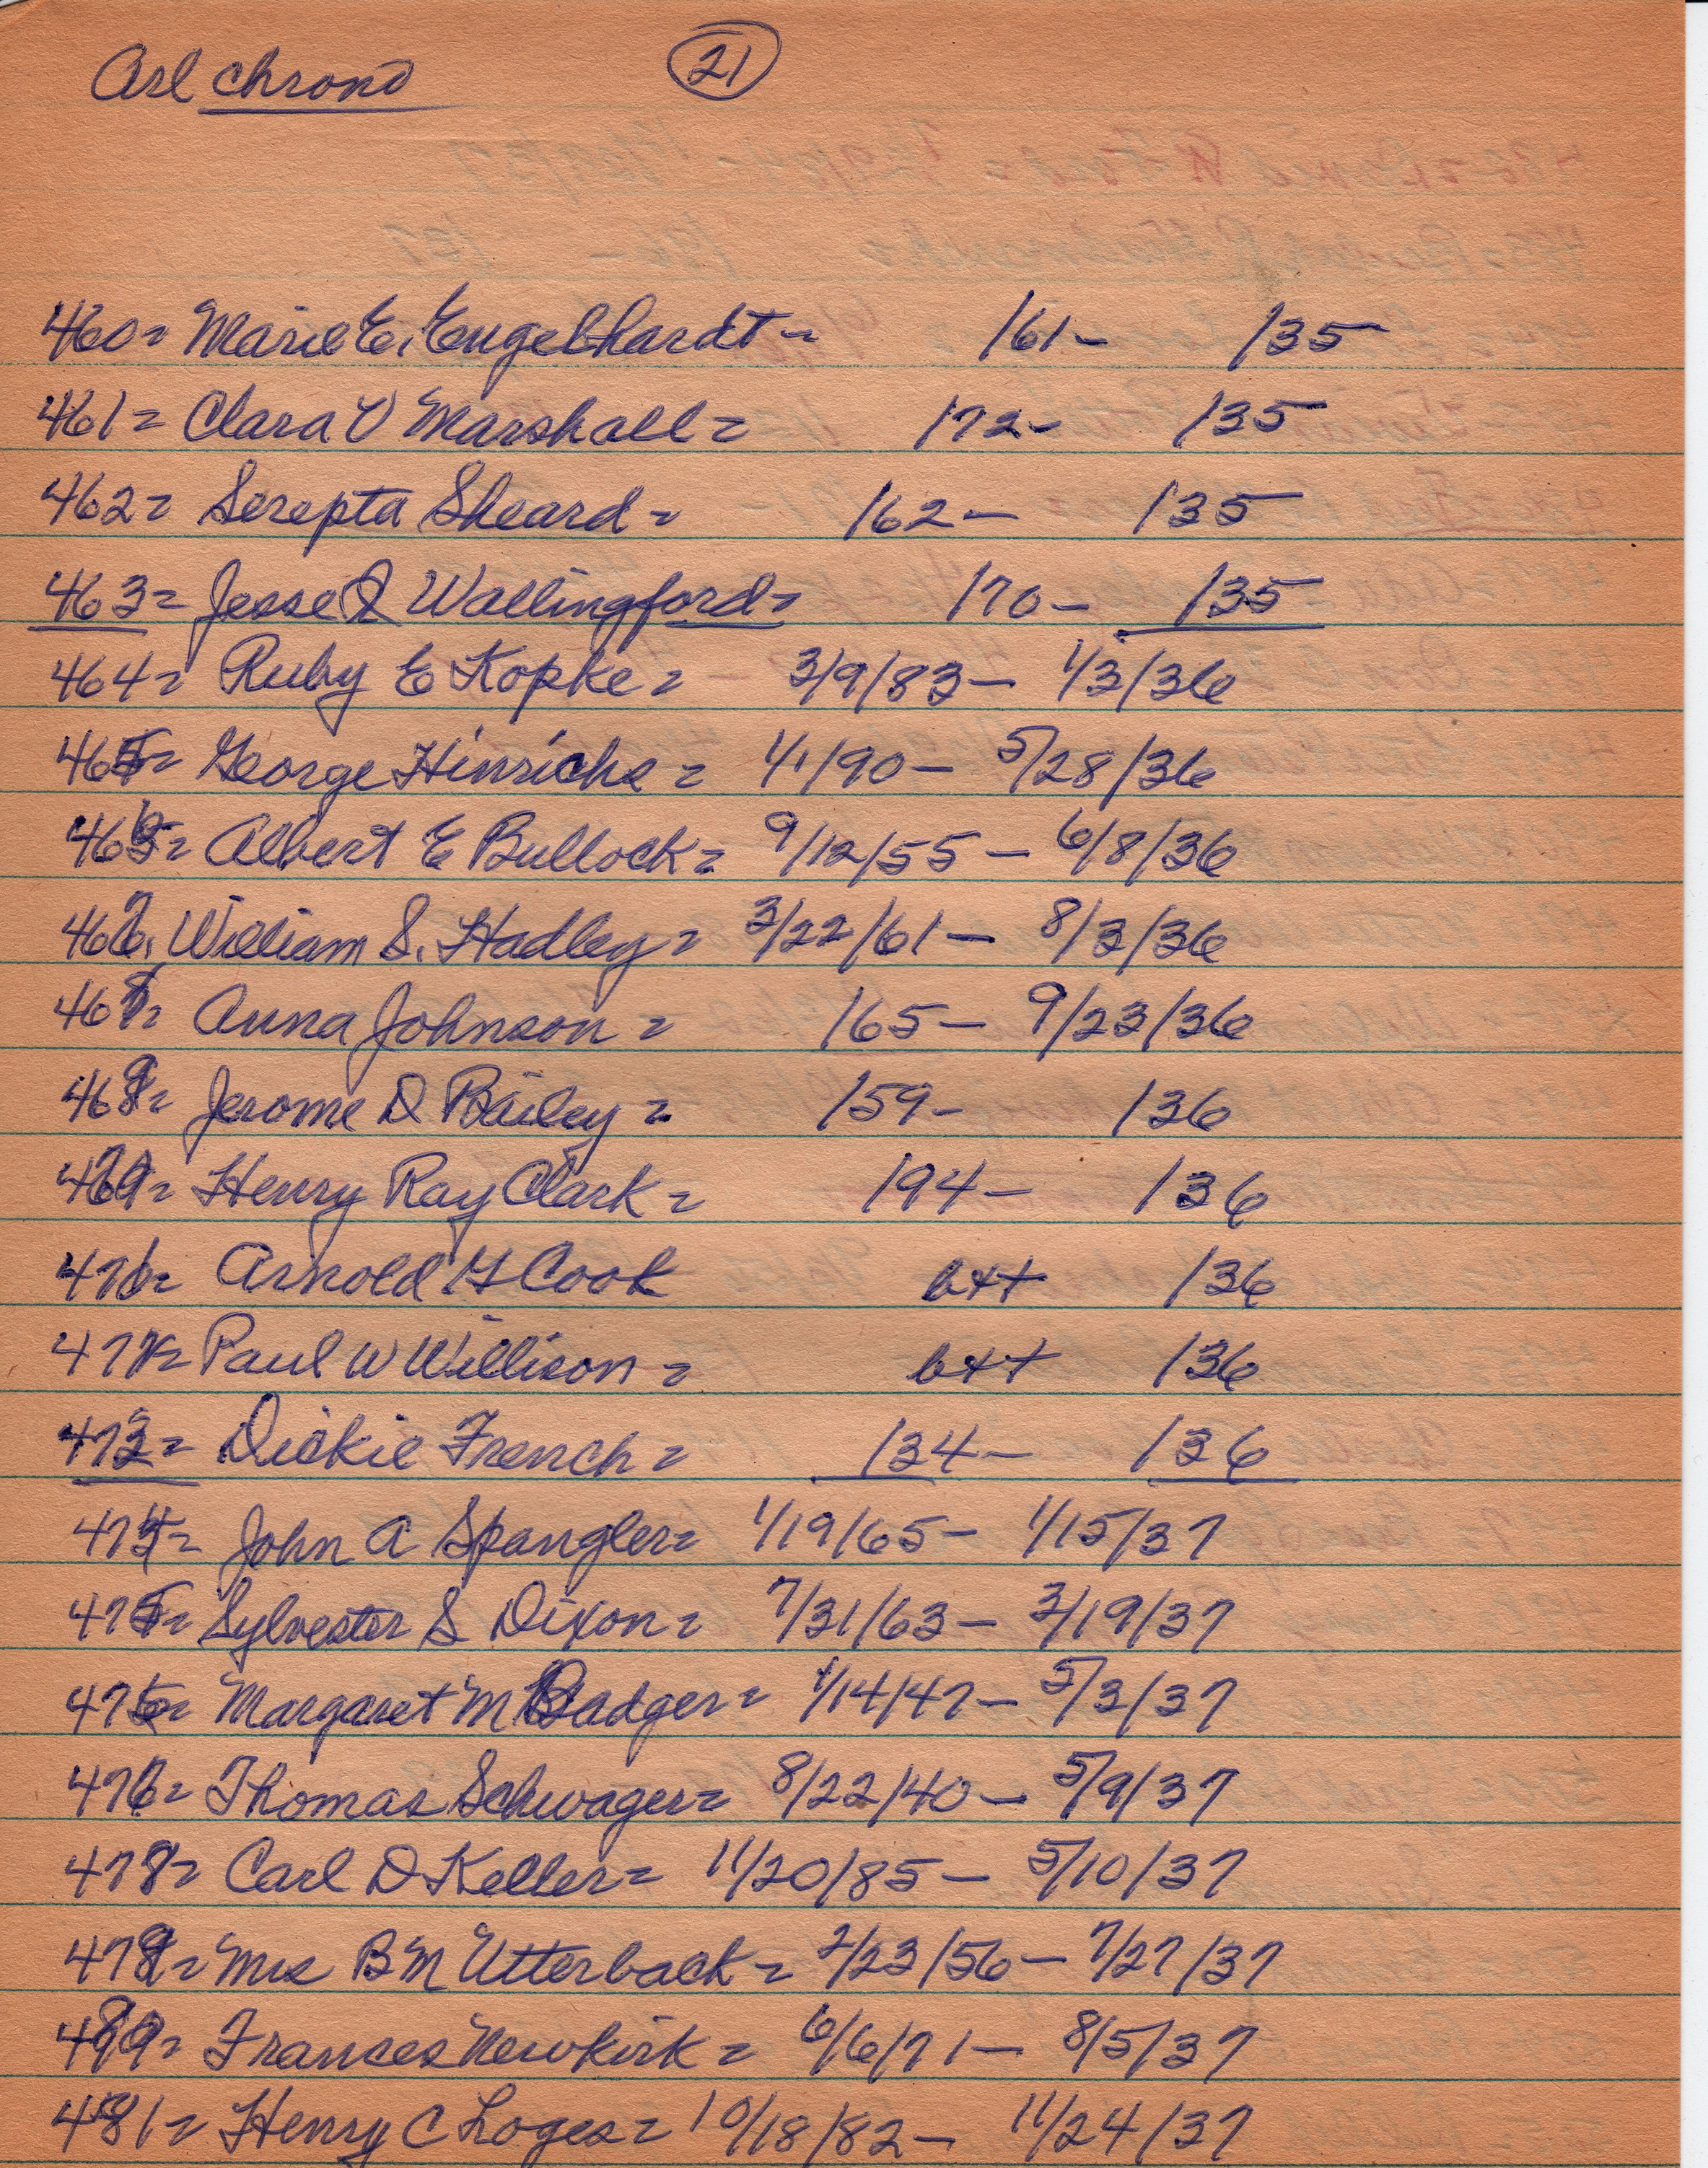 Arl chrono 21
460= Marie E. Engelhardt= /61- /35
461= Clara V Marshall= /72- /35
462= Serepta Sheard= /62- /35
463= Jesse D Wallingford= /70- /35
464= Ruby E Kopke= 3/9/83- 1/3/36
465= George Hinrichs= 1/1/90- 5/28/36
466= Albert E Bullock= 9/12/55- 6/8/36
467, William S. Hadley= 3/22/61- 8/3/36
468= Anna Johnson= /65- 9/23/36
469= Jerome D Bailey= /59- /36
470= Henry Ray Clark= /94- /36
471= Arnold G Cook /36
472= Paul W Willison= /36
473= Dickie French= /34- /36
474= John A Spangler= 1/19/65- 1/15/37
475= Sylvester S Dixon= 7/31/63- 3/19/37
476= Margaret M Badger= 1/14/47- 5/3/37
477= Thomas Schwager= 8/22/40- 5/9/37
478= Carl D Keller= 11/20/85- 5/10/37
479= Mrs B M Utterback= 2/23/56- 7/27/37
480= Frances Newkirk= 6/6/71- 8/5/37
481= Henry C Loges= 10/18/82- 11/24/37